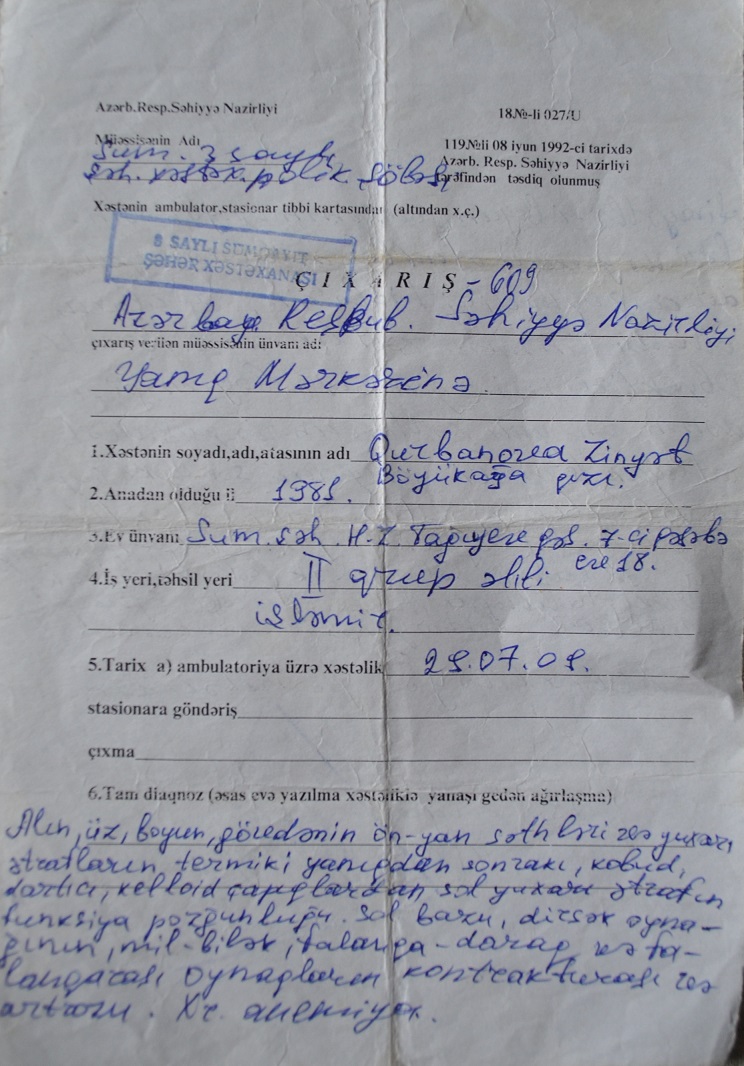 Azərb.Resp.Səhiyyə Nazirliyi
18.№-li 027/U
Müəssisənin Adı
Sum. 3 saylı
şəh. xəstəx. polik. şöbəsi
119.№li 08 iyun 1992-ci tarixdə
Azərb. Resp. Səhiyyə Nazirliyi
tərəfindən təsdiq olunmuş
Xəstənin ambulator,stasionar tibbi kartasından (altından x.ç.)
8 SAYLI SUMQAYIT
ŞƏHƏR XƏSTƏXANASI
ÇIXARIŞ - 609
Azərbayc. Respub. Səhiyyə Nazirliyi
çıxarış verilən müəssisənin ünvanı adı
Yanıq Mərkəzinə
1.Xəstənin soyadı,adı,atasının adı Qurbanova Zinyət
Böyükağa qızı.
2.Anadan olduğu il 1981.
3.Ev ünvanı Sum. şəh. H.Z. Tağıyev qəs. 7-ci qəsəbə
ev 18.
4.İş yeri,təhsil yeri II qrup əlili
işləmir.
5.Tarix a) ambulatoriya üzrə xəstəlik 29.07.09.
stasionara göndəriş
çıxma
6.Tam diaqnoz (əsas evə yazılma xəstəliklə yanaşı gedən ağırlaşma)
Alın, üz, boyun, gövdənin ön-yan səthləri və yuxarı
ətrafların termiki yanıqdan sonrakı, kobud,
dartıcı, kelloid çapıqlardan sol yuxarı ətrafın
funksiya pozğunluğu. Sol bazu, dirsək oyna-
ğının, mil-bilək, falanqa-daraq və fa-
lanqarası oynaqların kontrakturası və
artrozu. Xr. anemiya.